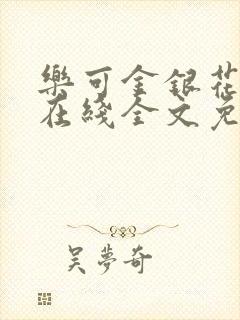 樂可金銀花
在綫全文免
吴夢奇